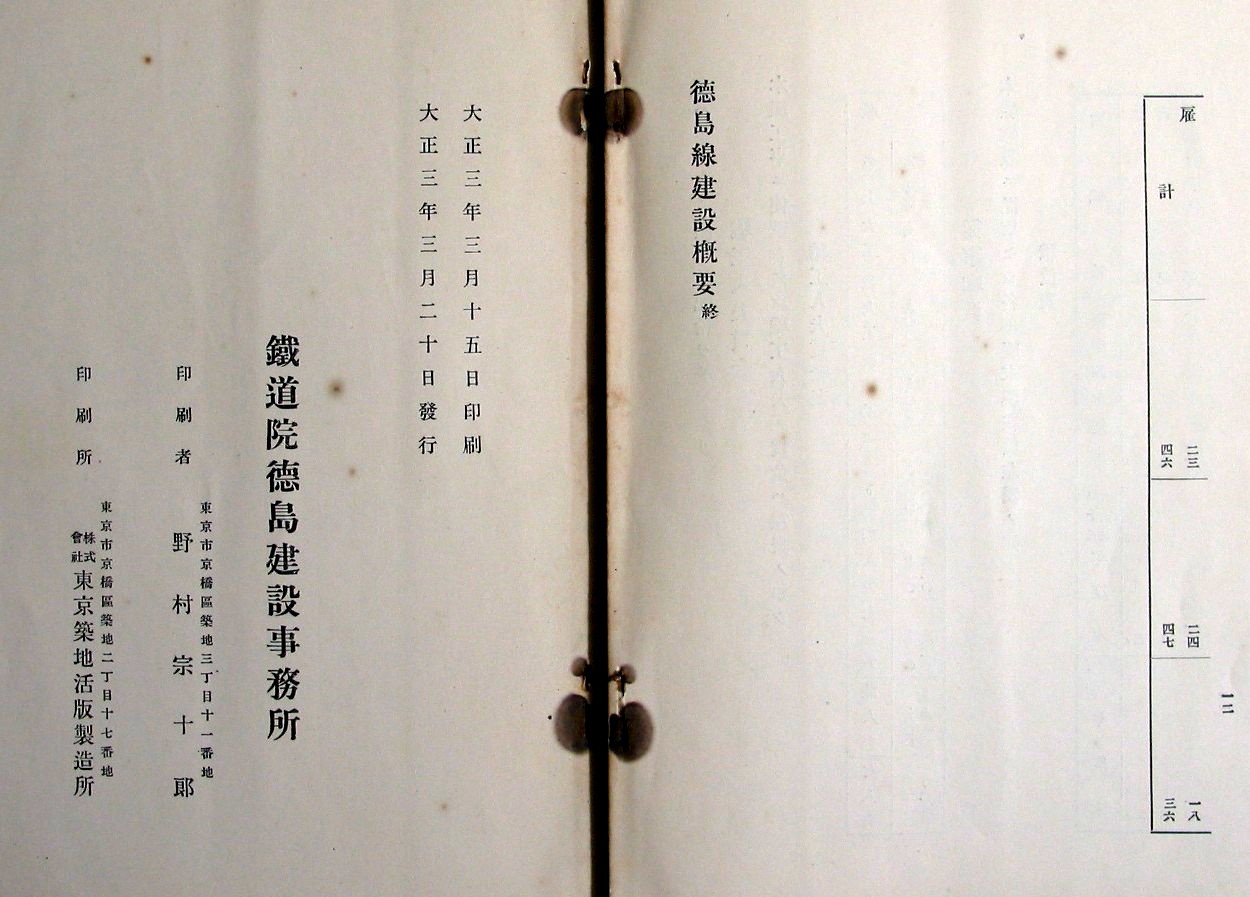 雇 二三 二四 一八
計 四六 四七 三六
一二
德島線建設槪要終
大正三年三月十五日印刷
大正三年三月二十日發行
鐵道院德島建設事務所
東京市京橋區築地三丁目十一番地
印刷者 野村宗十郞
東京市京橋區築地二丁目十七番地
印刷所 株式會社東京築地活版製造所